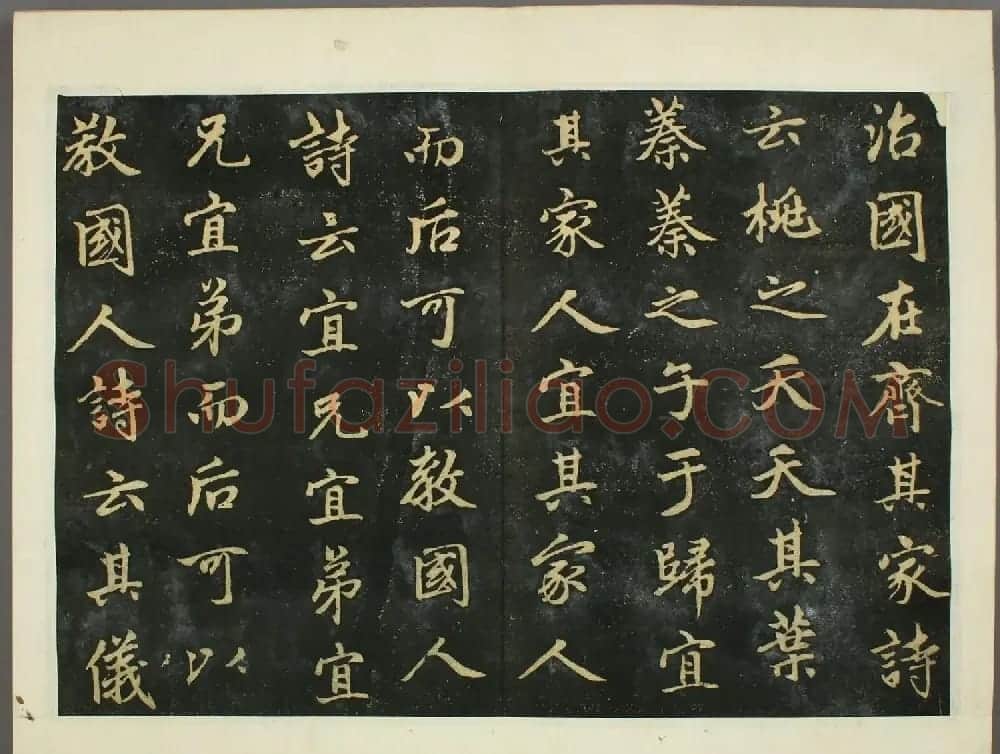 治國在齊其家詩
云桃之夭夭其葉
蓁蓁之子于歸宜
其家人宜其家人
而后可以教國人
詩云宜兄宜弟宜
兄宜弟而后可以
教國人詩云其儀
Shufaziliao.COM